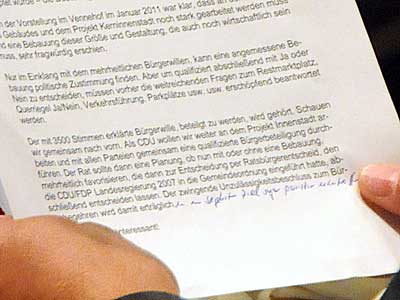 n der Vorstellung im Vennehof im Januar 2011 war klar, dass an
Gebäudes und dem Projekt Kerninnenstadt noch stark gearbeitet werden muss
nd eine Bebauung dieser Größe und Gestaltung, die auch noch wirtschaftlich sein
muss, sehr fragwürdig erschien.
Nur im Einklang mit dem mehrheitlichen Bürgerwillen, kann eine angemessene Be-
bauung politische Zustimmung finden. Aber um qualifiziert abschließend mit Ja oder
Nein zu entscheiden, müssen vorher die weitreichenden Fragen zum Restmarktplatz,
Querriegel Ja/Nein, Verkehrsführung, Parkplätze usw. usw. erschöpfend beantwortet
werden.
Der mit 3500 Stimmen erklärte Bürgerwille, beteiligt zu werden, wird gehört. Schauen
wir gemeinsam nach vorn. Als CDU wollen wir weiter an dem Projekt Innenstadt ar-
beiten und mit allen Parteien gemeinsam eine qualifizierte Bürgerbeteiligung durch-
führen. Der Rat sollte dann eine Planung, ob nun mit oder ohne eine Bebauung,
mehrheitlich favorisieren, die dann zur Entscheidung per Ratsbürgerentscheid, den
die CDU/FDP Landesregierung 2007 in die Gemeindeordnung eingeführt hatte, ab-
schließend entscheiden lassen. Der zwingende Unzulässigkeitsbeschluss zum Bür-
gerbegehren wird damit erträglich
nteressant!